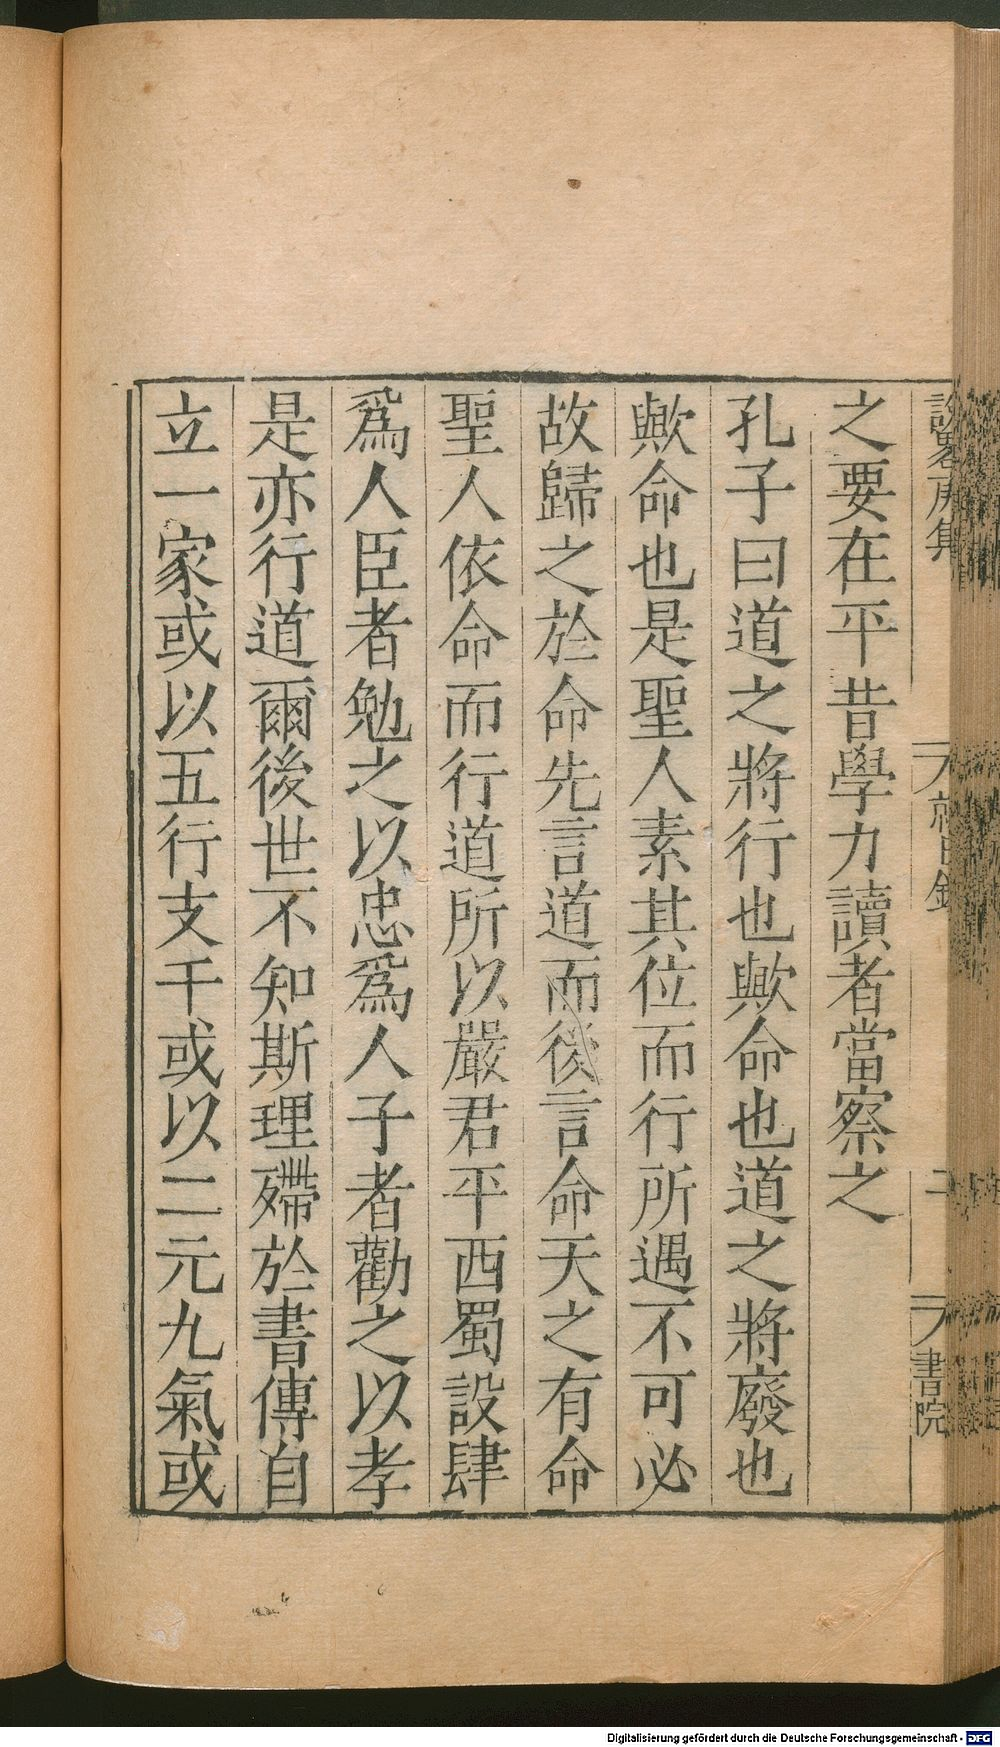 之要在平昔學力讀者當察之
孔子曰道之將行也歟命也道之將廢也
歟命也是聖人素其位而行所遇不可必
故歸之於命先言道而後言命天之有命
聖人依命而行道所以嚴君平西蜀設肆
爲人臣者勉之以忠爲人子者勸之以孝
是亦行道爾後世不知斯理殢於書傳自
立一家或以五行支干或以二元九氣或
書院
Digitalisierung gefördert durch die Deutsche Forschungsgemeinschaft - DFG